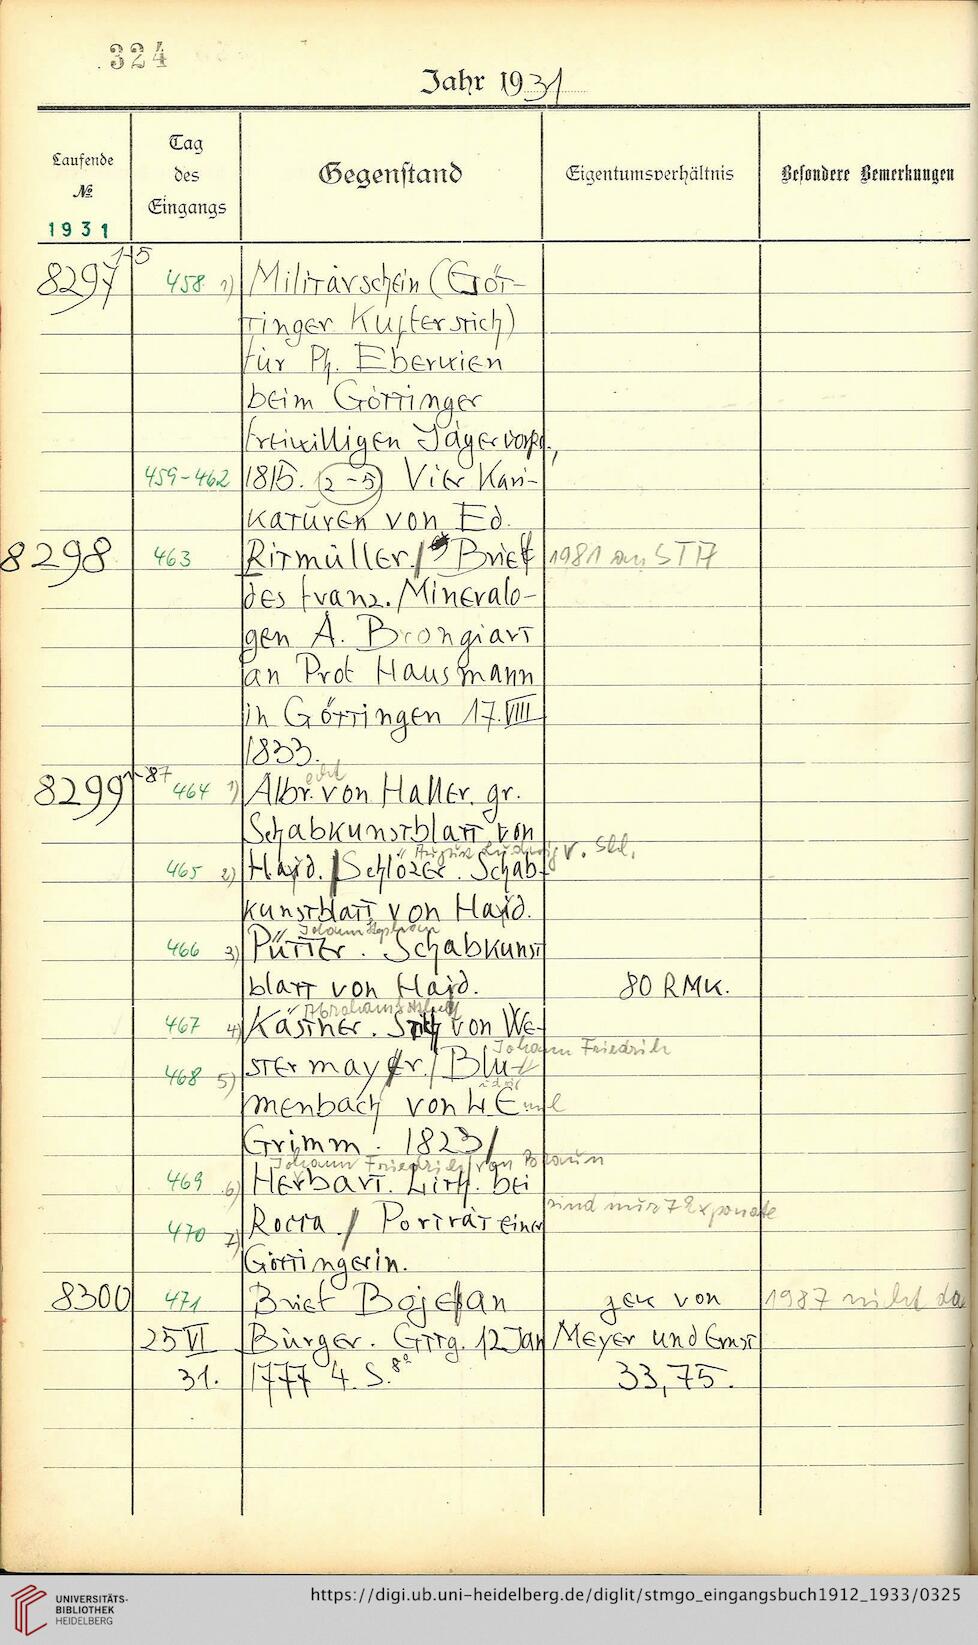 324
Jahr 1931
Laufende
№
1931
Tag
des
Eingangs
Gegenstand
Eigentumsverhältnis
Besondere Bemerkungen
8297 1-5
458 1) Militärschein (Göt-
tinger Kupferstich)
für Ph. Eberwien
beim Göttinger
freiwilligen Jägercorps,
459-462 1815. (2-5) Vier Kari-
katuren von Ed.
8298 463 Ritmüller./ Brief 1981 an ST17
des franz. Mineralo-
gen A. Brongiart
an Prof Hausmann
in Göttingen 17.VIII
1833.
8299 1-87 464 1) Albr. von Haller. gr.
Schabkunstblatt von
August Ludwig v. Shl.
465 2) Haid. / Schlözer. Schab-
kunstblatt von Haid.
Johann Stephan
466 3) Pütter. Schabkunst
blatt von Haid. 80 RMK.
Abraham Gotthelf
467 4) Kästner. Stich von We-
Johann Friedrich
468 5) stermayer./ Blu-
menbach von L. Emil
Grimm. 1823/
Johann Friedrich / von Braun
469 6) Herbart. Lith. bei
sind nur 7 Exponate
470 7) Rocca / Porträt einer
Göttingerin.
8300 471 Brief Boje an gek von 1987 nicht da
25 VI Bürger. Gttg. 12 Jan Meyer und Ernst
31. 1777 4. S. 8° 33,75.
UNIVERSITÄTS-
BIBLIOTHEK
HEIDELBERG
https://digi.ub.uni-heidelberg.de/diglit/stmgo_eingangsbuch1912_1933/0325